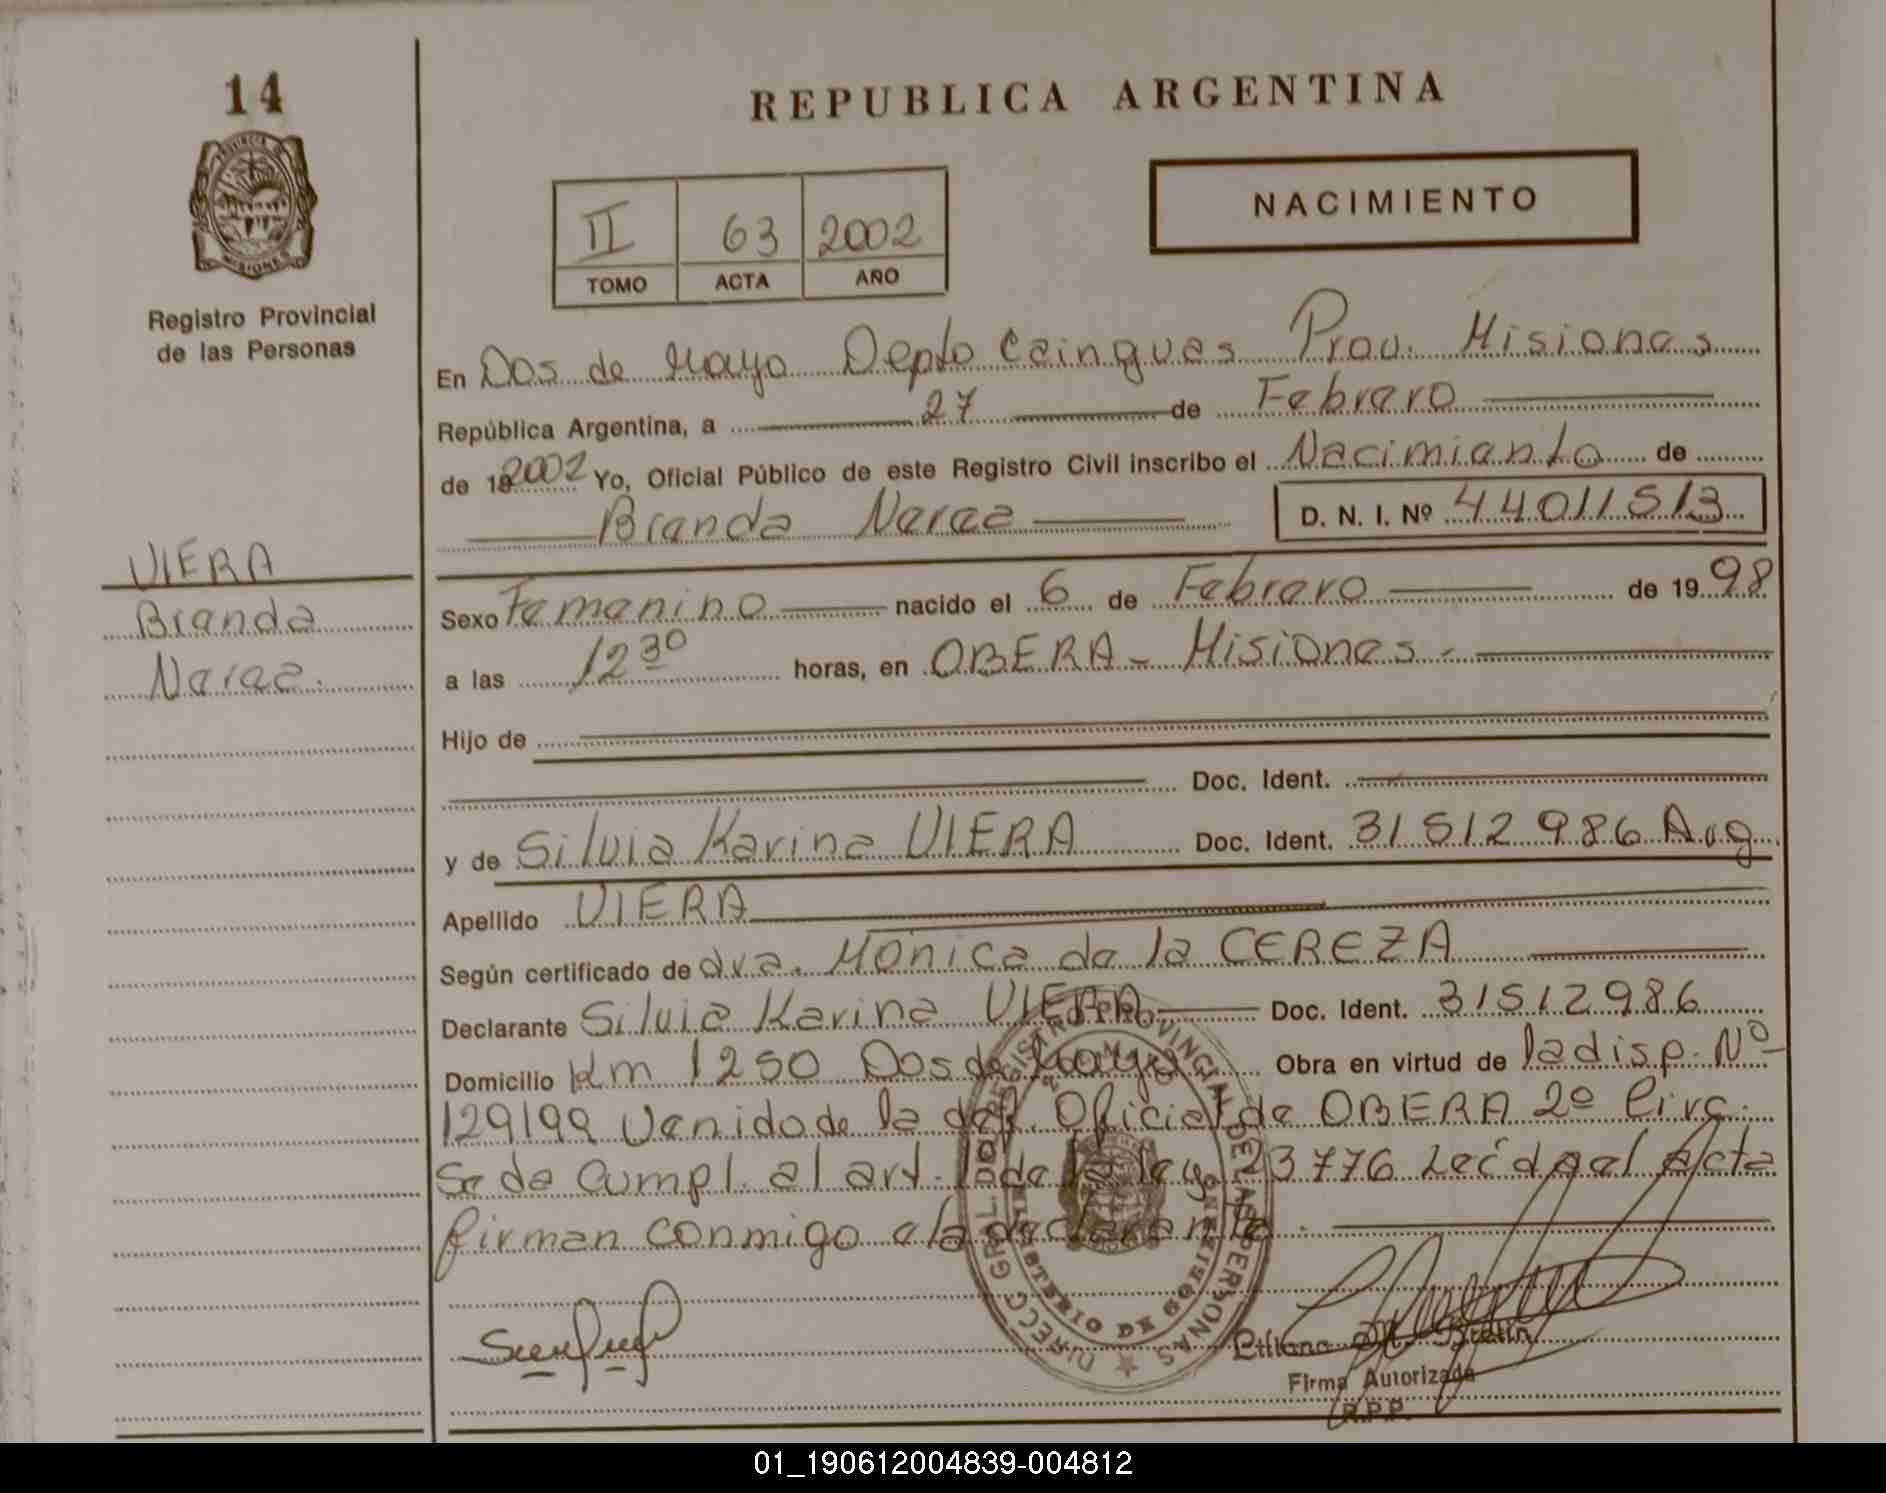 14
REPUBLICA ARGENTINA
PROVINCIA DE
MISIONES
Registro Provincial
de las Personas
NACIMIENTO
II 63 2002
TOMO ACTA AÑO
En Dos de Mayo Depto Cainguas Prov. Misiones
República Argentina, a 27 de Febrero
de 19 2002 Yo, Oficial Público de este Registro Civil inscribo el Nacimiento de
Brenda Nerea D. N. I. Nº 44011513
VIERA
Brenda
Nerea.
Sexo Femenino nacido el 6 de Febrero de 1998
a las 12 30 horas, en OBERA - Misiones -
Hijo de
Doc. Ident.
y de Silvia Karina VIERA Doc. Ident. 31512986 Arg
Apellido VIERA
Según certificado de dra. Monica de la CEREZA
Declarante Silvia Karina VIERA Doc. Ident. 31512986
Domicilio Km 1250 Dos de Mayo Obra en virtud de la disp. Nº
129199 Venido de la def. Oficial de OBERA 2º Circ.
Se da cumpl. al art. 1 de la ley 23776 Leída el Acta
firman conmigo el la declarante.
DIRECC GRL. DEL REGISTRO PROVINCIAL DE LAS PERSONAS
MINISTERIO DE GOBIERNO
Firma Autorizada
R.P.P.
01_190612004839-004812